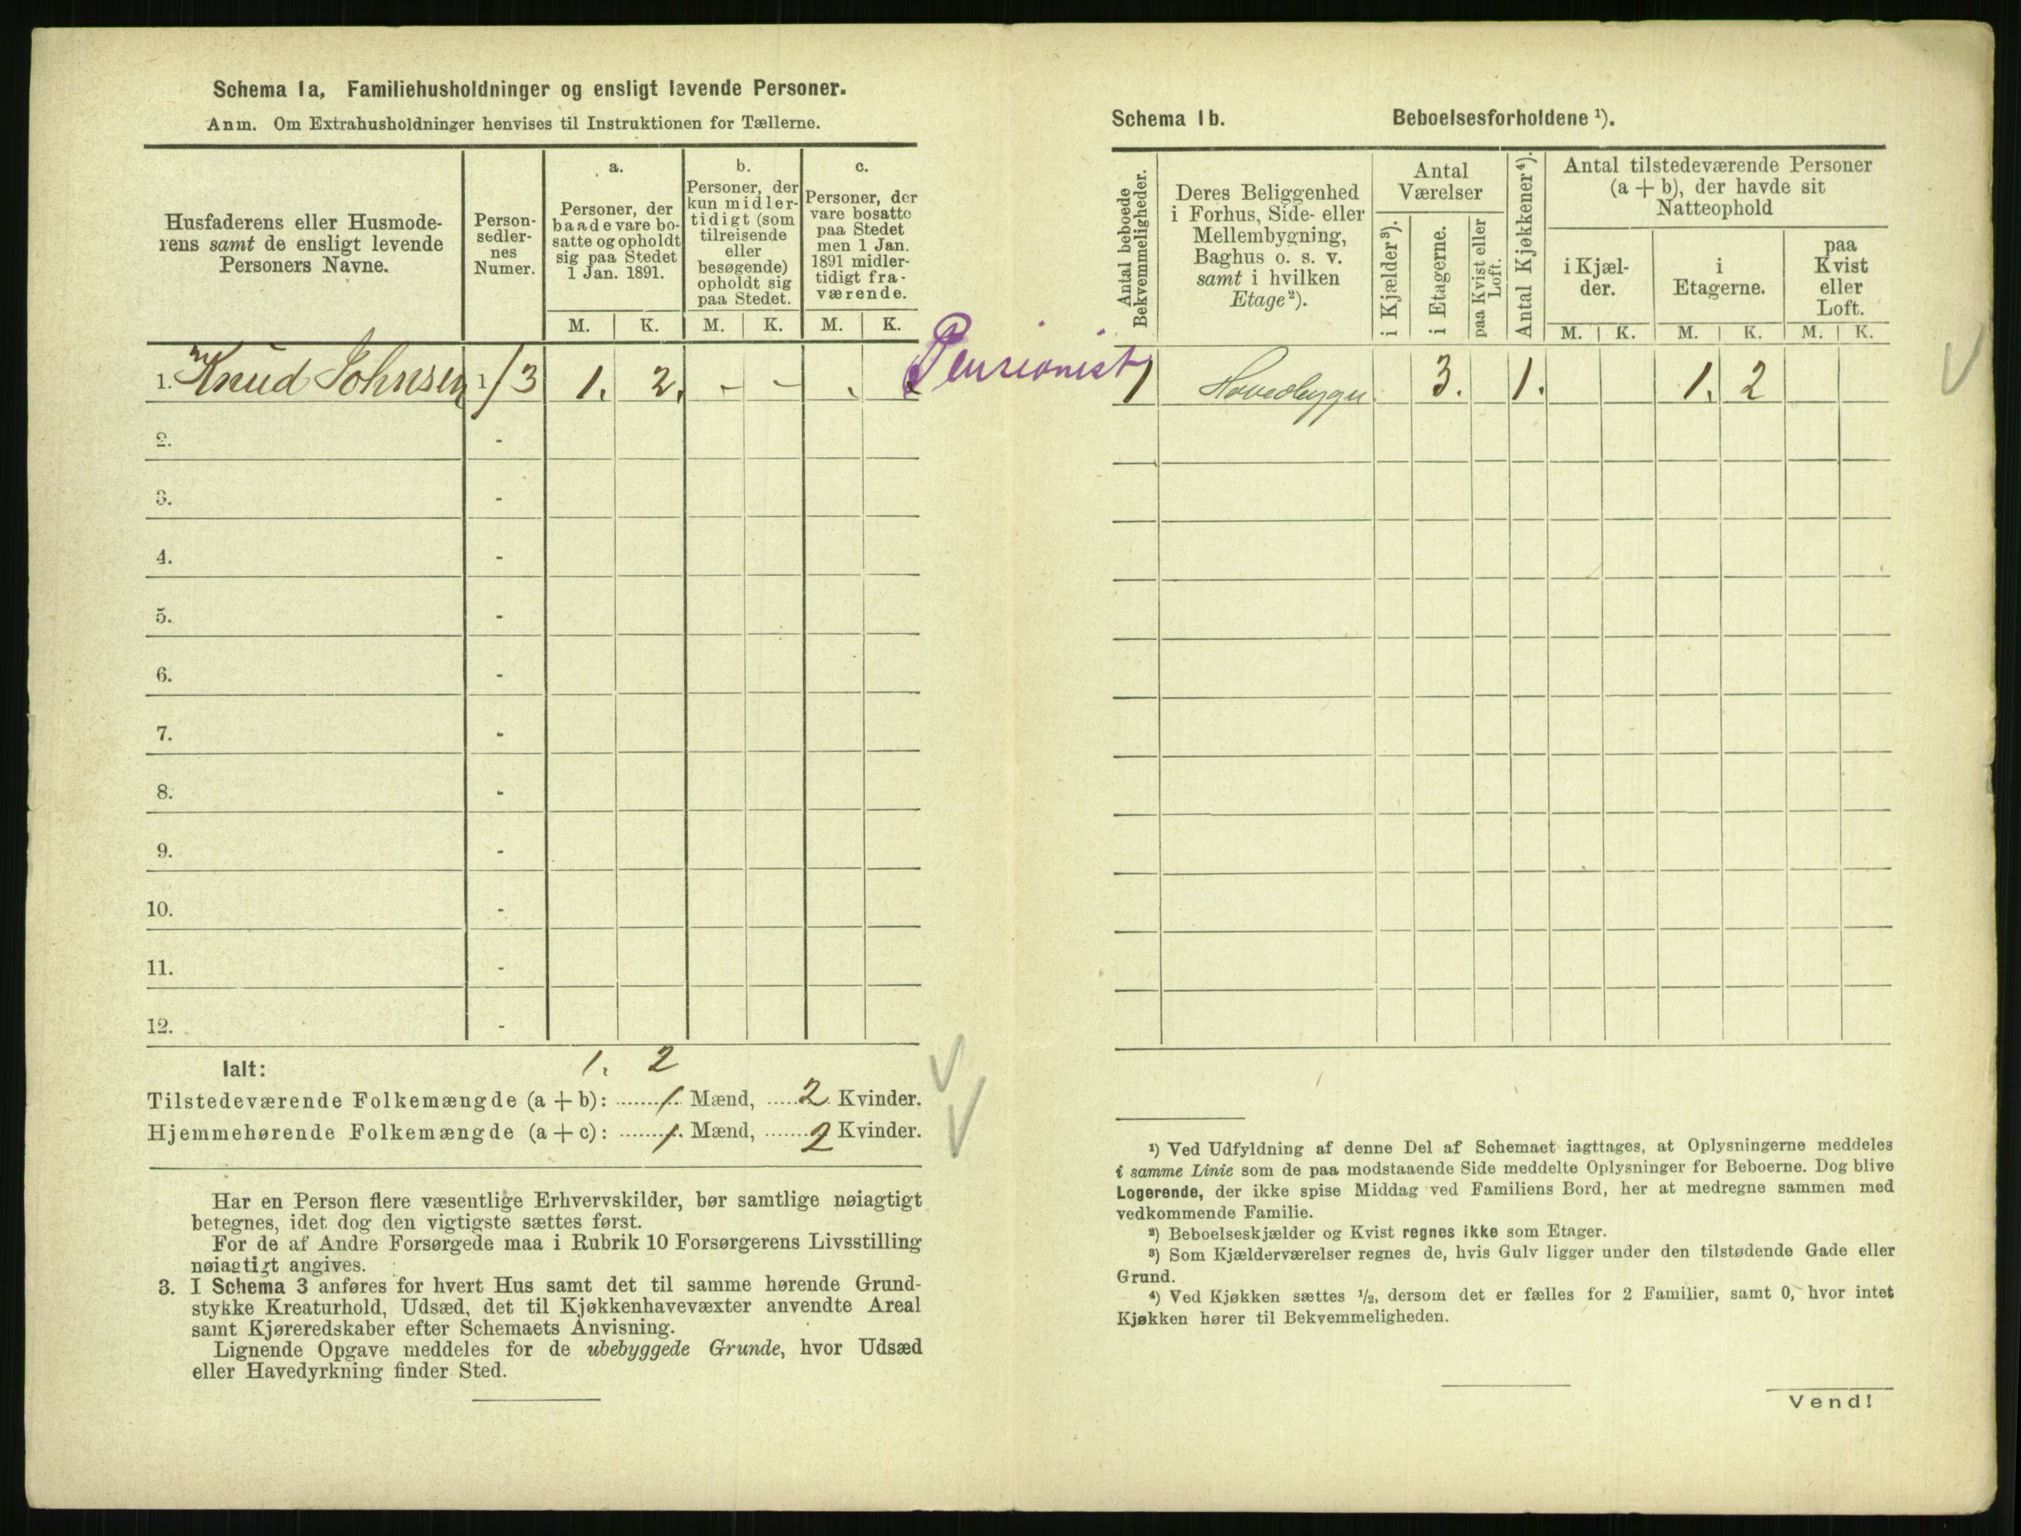 Schema 1a. Familiehusholdninger og ensligt levende Personer.
Anm. Om Extrahusholdninger henvises til Instruktionen for Tællerne.
Husfaderens eller Husmode-
rens samt de ensligt levende
Personers Navne.
Person-
sedler-
nes
Numer.
a.
Personer, der
baade vare bo-
satte og opholdt
sig paa Stedet
1 Jan. 1891.
b.
Personer, der
kun midler-
tidigt (som
tilreisende
eller
besøgende)
opholdt sig
paa Stedet.
c.
Personer, der
vare bosatte
paa Stedet
men 1 Jan.
1891 midler-
tidigt fra-
værende.
M. K. M. K. M. K.
1. Knud Johnsen 1/3 1. 2. - - . Pensionist
2. -
3. -
4. -
5. -
6. -
7. -
8. -
9. -
10. -
11. -
12. -
Ialt: 1. 2
Tilstedeværende Folkemængde (a + b): 1 Mænd, 2 Kvinder.
Hjemmehørende Folkemængde (a + c): 1 Mænd, 2 Kvinder.
Har en Person flere væsentlige Erhvervskilder, bør samtlige nøiagtigt
betegnes, idet dog den vigtigste sættes først.
For de af Andre Forsørgede maa i Rubrik 10 Forsørgerens Livsstilling
nøiagtigt angives.
3. I Schema 3 anføres for hvert Hus samt det til samme hørende Grund-
stykke Kreaturhold, Udsæd, det til Kjøkkenhavevæxter anvendte Areal
samt Kjøreredskaber efter Schemaets Anvisning.
Lignende Opgave meddeles for de ubebyggede Grunde, hvor Udsæd
eller Havedyrkning finder Sted.
Schema 1b. Beboelsesforholdene ¹).
Antal beboede
Bekvemmeligheder.
Deres Beliggenhed
i Forhus, Side- eller
Mellembygning,
Baghus o. s. v.
samt i hvilken
Etage²).
Antal
Værelser
i Kjælder³).
i Etagerne.
paa Kvist eller
Loft.
Antal Kjøkkener⁴).
Antal tilstedeværende Personer
(a + b), der havde sit
Natteophold
i Kjæl-
der.
i
Etagerne.
paa
Kvist
eller
Loft.
M. K. M. K. M. K.
1 Hovedbygn 3. 1. 1. 2
¹) Ved Udfyldning af denne Del af Schemaet iagttages, at Oplysningerne meddeles
i samme Linie som de paa modstaaende Side meddelte Oplysninger for Beboerne. Dog blive
Logerende, der ikke spise Middag ved Familiens Bord, her at medregne sammen med
vedkommende Familie.
²) Beboelseskjælder og Kvist regnes ikke som Etager.
³) Som Kjælderværelser regnes de, hvis Gulv ligger under den tilstødende Gade eller
Grund.
⁴) Ved Kjøkken sættes ½, dersom det er fælles for 2 Familier, samt 0, hvor intet
Kjøkken hører til Bekvemmeligheden.
Vend!